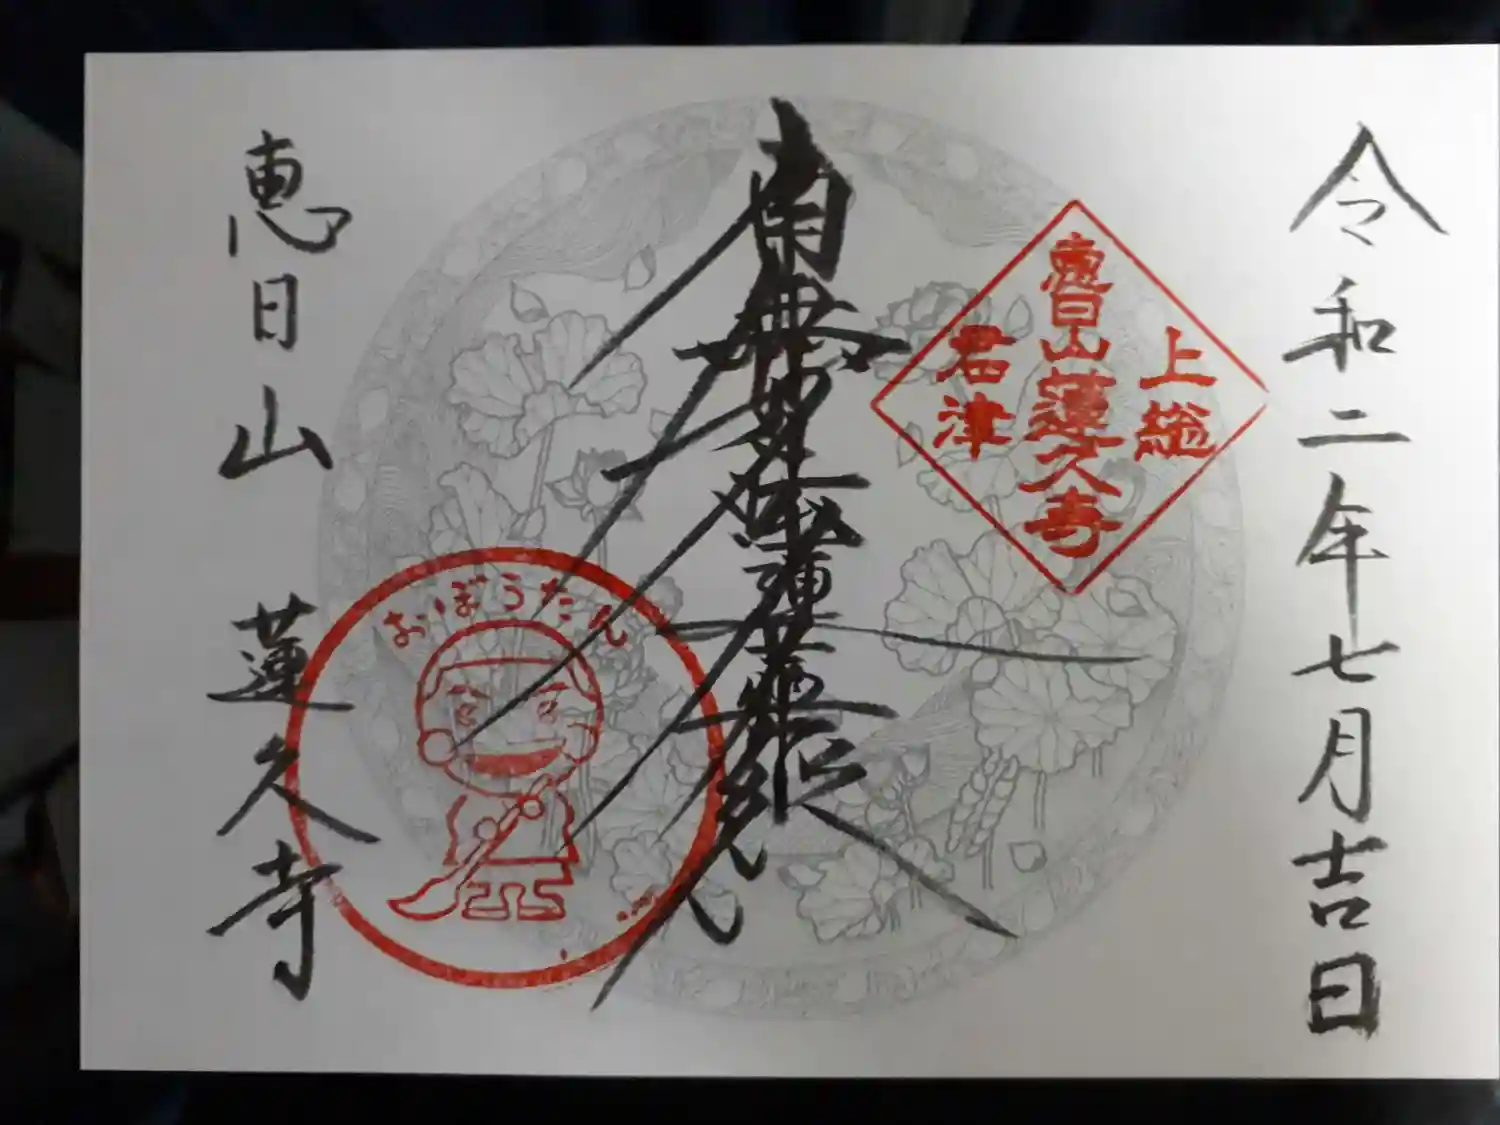 令和二年七月吉日
上総
恵日山蓮久寺
君津
南無妙法蓮華経
おぼうたん
恵日山 蓮久寺